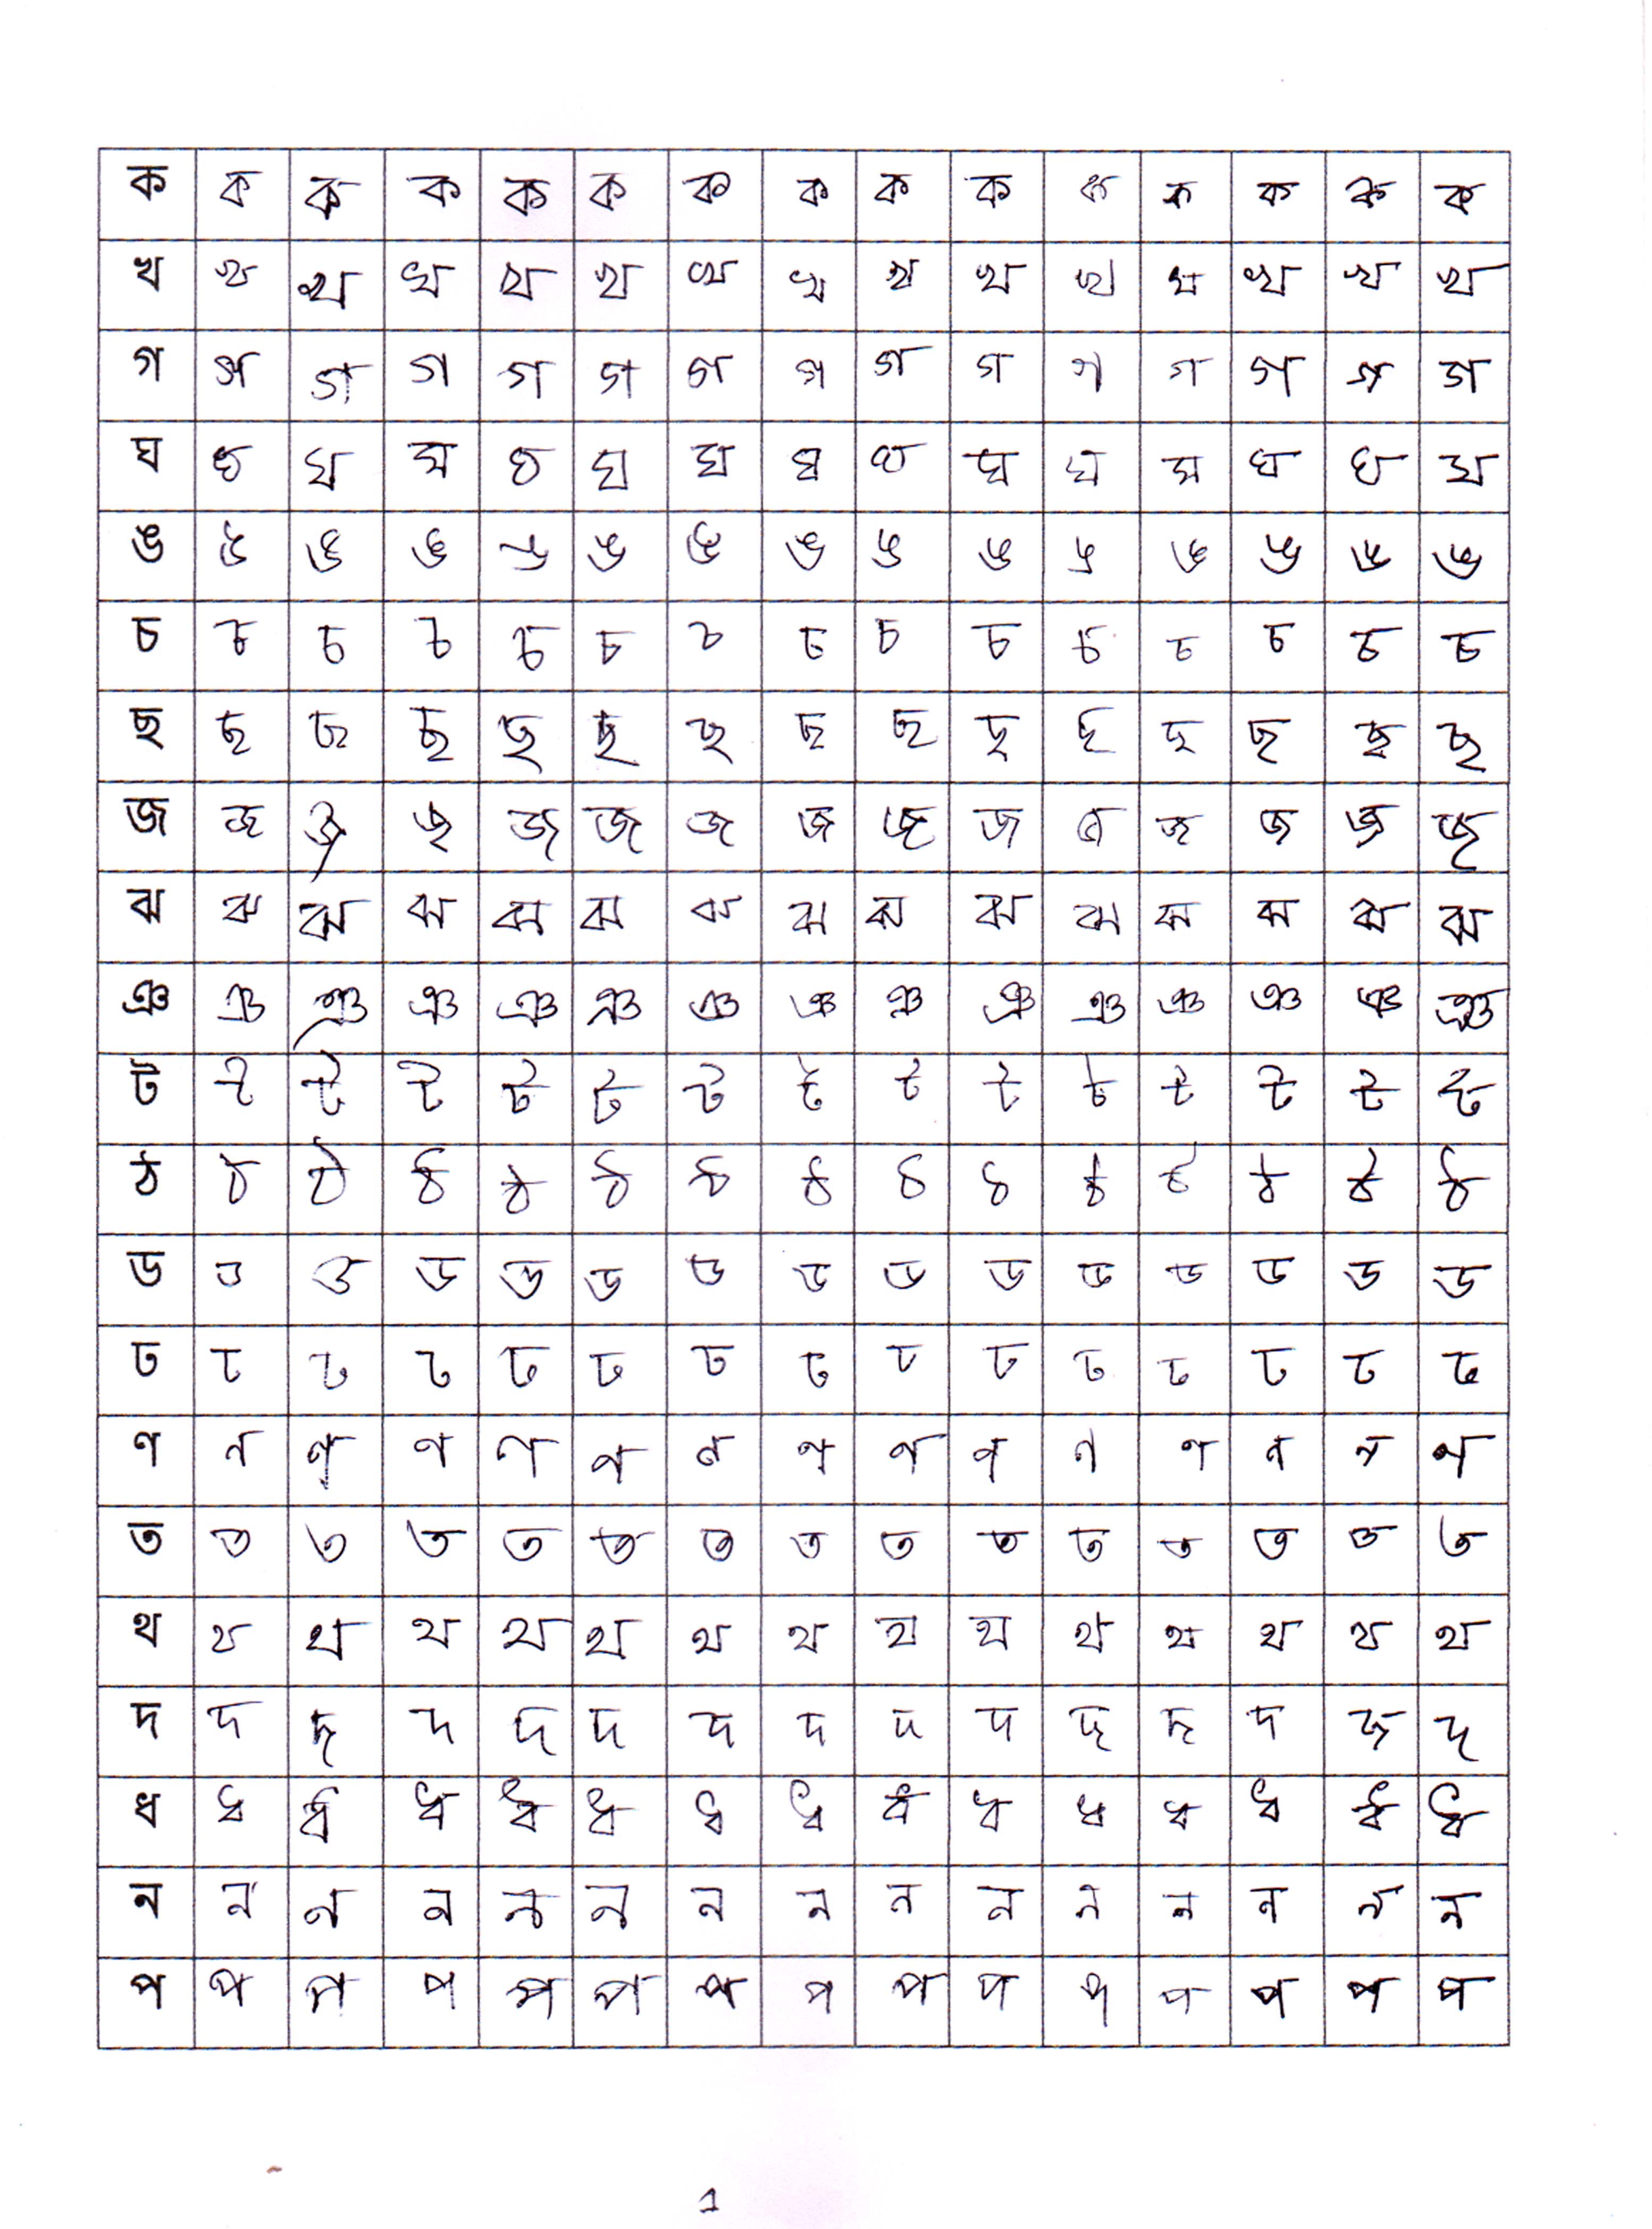 ক ক ক ক ক ক ক ক ক ক ক ক ক ক ক
খ খ খ খ খ খ খ খ খ খ খ খ খ খ খ
গ গ গ গ গ গ গ গ গ গ গ গ গ গ গ
ঘ ঘ ঘ ঘ ঘ ঘ ঘ ঘ ঘ ঘ ঘ ঘ ঘ ঘ ঘ
ঙ ঙ ঙ ঙ ঙ ঙ ঙ ঙ ঙ ঙ ঙ ঙ ঙ ঙ ঙ
চ চ চ চ চ চ চ চ চ চ চ চ চ চ চ
ছ ছ ছ ছ ছ ছ ছ ছ ছ ছ ছ ছ ছ ছ ছ
জ জ জ জ জ জ জ জ জ জ জ জ জ জ জ
ঝ ঝ ঝ ঝ ঝ ঝ ঝ ঝ ঝ ঝ ঝ ঝ ঝ ঝ ঝ
ঞ ঞ ঞ ঞ ঞ ঞ ঞ ঞ ঞ ঞ ঞ ঞ ঞ ঞ ঞ
ট ট ট ট ট ট ট ট ট ট ট ট ট ট ট
ঠ ঠ ঠ ঠ ঠ ঠ ঠ ঠ ঠ ঠ ঠ ঠ ঠ ঠ ঠ
ড ড ড ড ড ড ড ড ড ড ড ড ড ড ড
ঢ ঢ ঢ ঢ ঢ ঢ ঢ ঢ ঢ ঢ ঢ ঢ ঢ ঢ ঢ
ণ ণ ণ ণ ণ ণ ণ ণ ণ ণ ণ ণ ণ ণ ণ
ত ত ত ত ত ত ত ত ত ত ত ত ত ত ত
থ থ থ থ থ থ থ থ থ থ থ থ থ থ থ
দ দ দ দ দ দ দ দ দ দ দ দ দ দ দ
ধ ধ ধ ধ ধ ধ ধ ধ ধ ধ ধ ধ ধ ধ ধ
ন ন ন ন ন ন ন ন ন ন ন ন ন ন ন
প প প প প প প প প প প প প প প
1